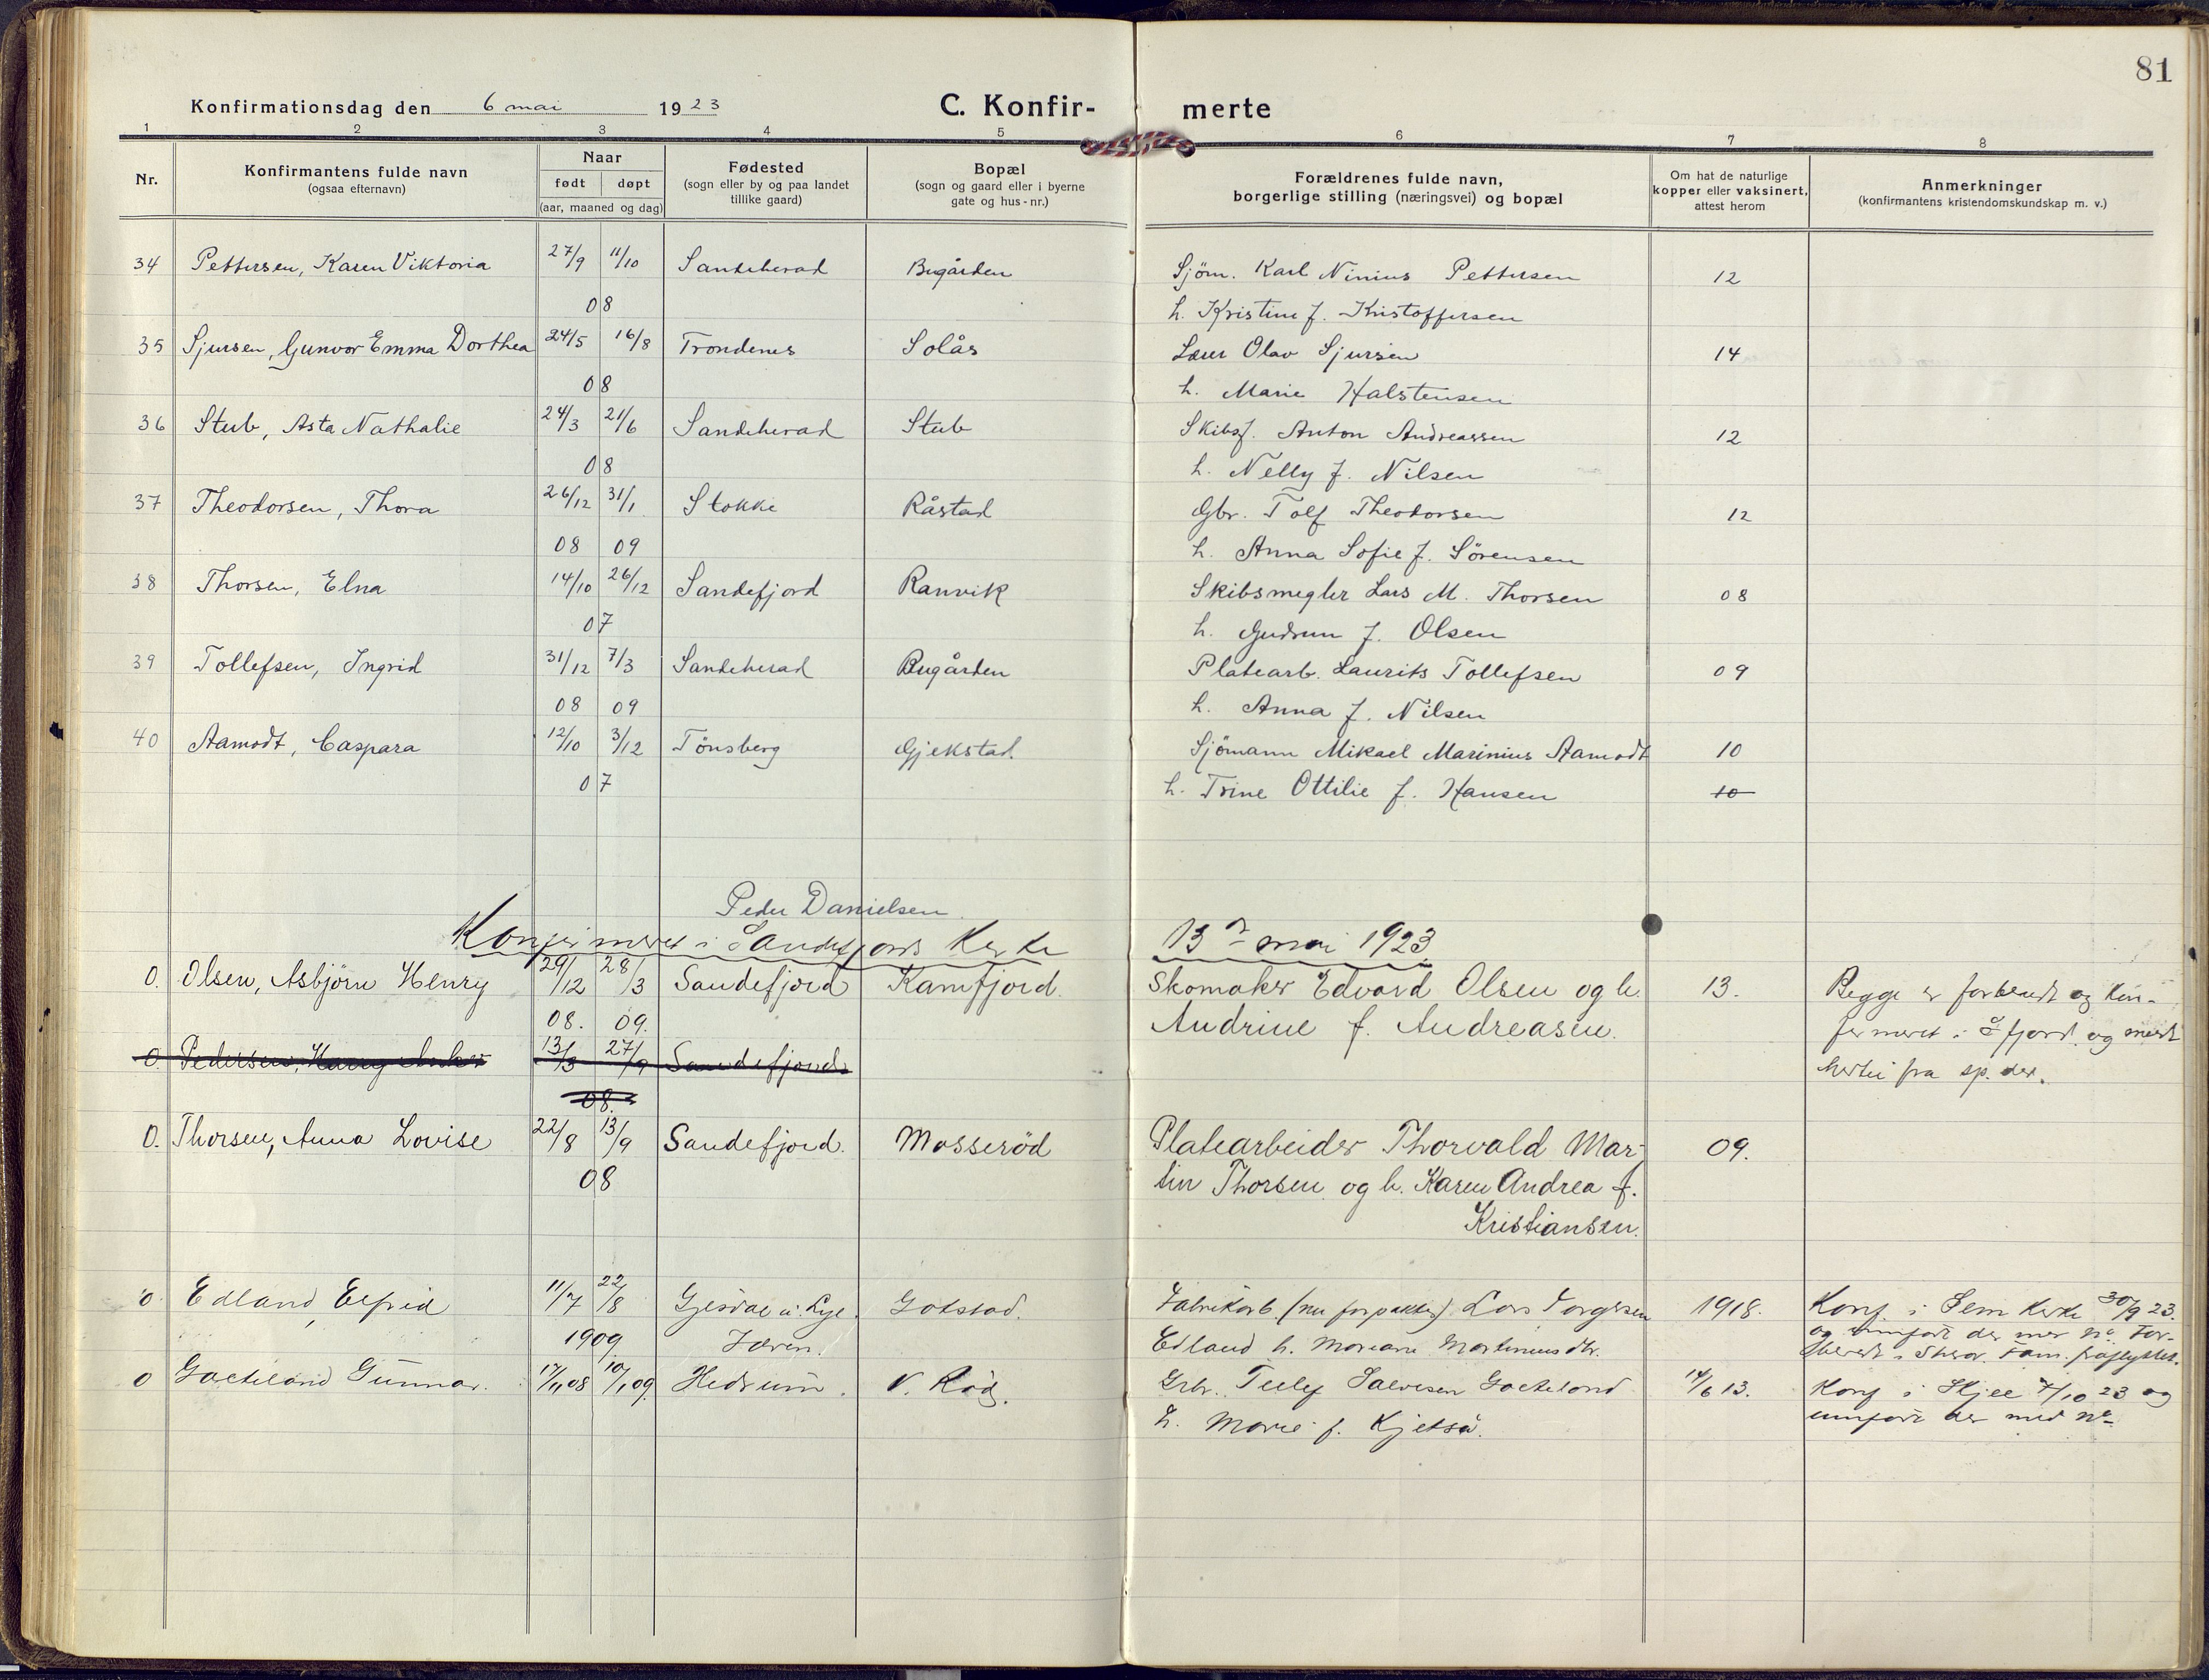 81
Konfirmationsdag den 6 mai 1923 C. Konfir- merte
1 2 3 4 5 6 7 8
Nr. Konfirmantens fulde navn (ogsaa efternavn) Naar født døpt (aar, maaned og dag) Fødested (sogn eller by og paa landet tillike gaard) Bopæl (sogn og gaard eller i byerne gate og hus-nr.) Forældrenes fulde navn, borgerlige stilling (næringsvei) og bopæl Om hat de naturlige kopper eller vaksinert, attest herom Anmerkninger (konfirmantens kristendomskundskap m. v.)
34 Pettersen, Karen Viktoria 27/9 11/10 Sandeherad Bugården Sjöm. Karl Ninius Pettersen 12
08 h. Kristine f. Kristoffersen
35 Sjursen, Gunvor Emma Dorthea 24/5 16/8 Trondenes Solås Lærer Olav Sjursen 14
08 h. Marie Halstensen
36 Stub, Asta Nathalie 24/3 21/6 Sandeherad Stub Skibsf. Anton Andreassen 12
08 h. Nelly f. Nilsen
37 Theodorsen, Thora 26/12 31/1 Stokke Råstad Gbr. Tolf Theodorsen 12
08 09 h. Anna Sofie f. Sörensen
38 Thorsen, Elna 14/10 26/12 Sandefjord Ranvik Skibsmegler Lars M. Thorsen 08
07 h. Gudrun f. Olsen
39 Tollefsen, Ingrid 31/12 7/3 Sandeherad Bugården Platearb. Laurits Tollefsen 09
08 09 h. Anna f. Nilsen
40 Aamodt, Caspara 12/10 3/12 Tönsberg Gjekstad. Sjömann Mikael Marinius Aamodt 10
07 h. Trine Ottilie f. Hansen 10
Peder Danielsen
Konfirmeret i Sandefjords Kirke 13de mai 1923
0. Olsen, Asbjörn Henry 29/12 28/3 Sandefjord Kamfjord. Skomaker Edvard Olsen og h. 13. Begge er forberedt og kon-
08. 09. Andrine f. Andreasen. firmeret i S.fjord og
0. Pedersen, Harry 13/3 27/9 Sandefjord fra sp. der.
08.
0. Thorsen, Anna Lovise 22/8 13/9 Sandefjord. Mosseröd Platearbeider Thorvald Mar- 09.
08 tin Thorsen og h. Karen Andrea f.
Kristiansen.
0 Edland, Elfrid 11/7 22/8 Gjesdal i Lye Gokstad. Fabrikarb. (nu forpakter) Lars Torgersen 1918. Konf. i Sem Kirke 30/9 23.
1909 Jæren. Edland h. Mariane Martiniusdtr. og innført der med No. For-
beredt i Fam. fraflyttet.
0 Gunnar. 17/11 08 10/1 09. Hedrum. N. Röd. Grbr. Salvesen 14/6 13. Konf i Skjee 7/10 23 og
h. Marie f. Kjetså. innført der med No